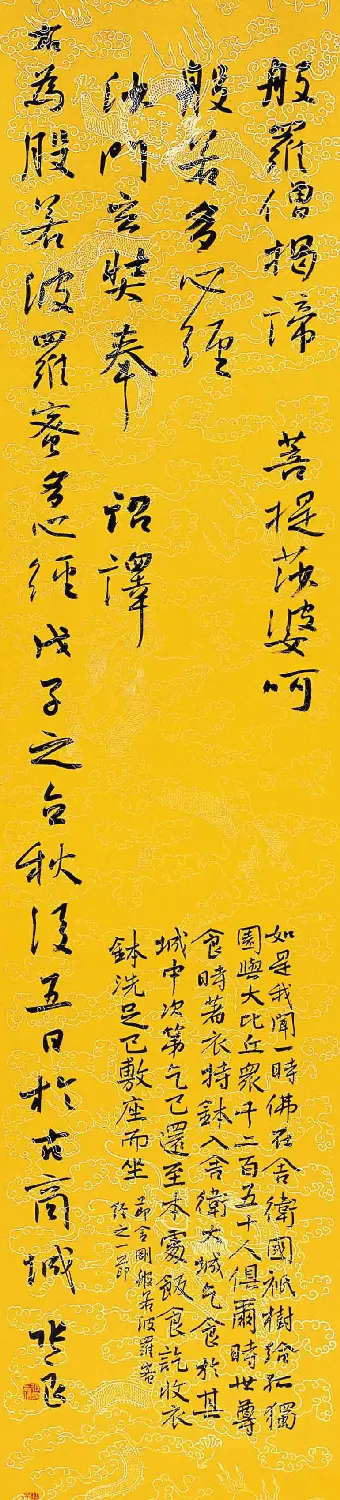 般羅僧揭諦　菩提莎婆呵
般若多心經
沙門玄奘奉　詔譯
如是我聞一時佛在舍衛國祇樹給孤獨
園與大比丘衆千二百五十人俱爾時世尊
食時著衣特鉢入舍衛大城乞食於其
城中次第乞已還至本處飯食訖收衣
鉢洗足已敷座而坐
節金剛般若波羅蜜
經之一節
為般若波羅蜜多心經戊子之白秋後五日於古商城